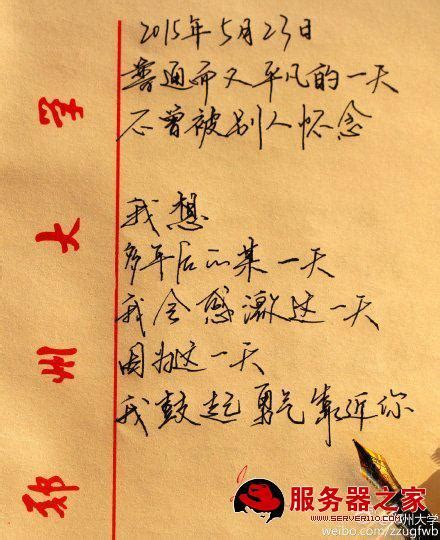 2015年5月23日
普通而又平凡的一天
不曾被别人怀念
我想
多年后的某一天
我会感激这一天
因为这一天
我鼓起勇气靠近你
郑州大学
服务器之家
www.server110.com
州大学
weibo.com/zzugfwb